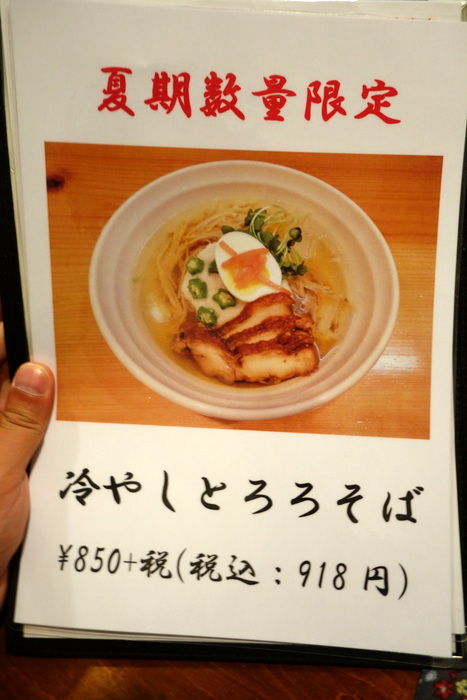 夏期数量限定
冷やしとろろそば
¥850+税(税込:918円)